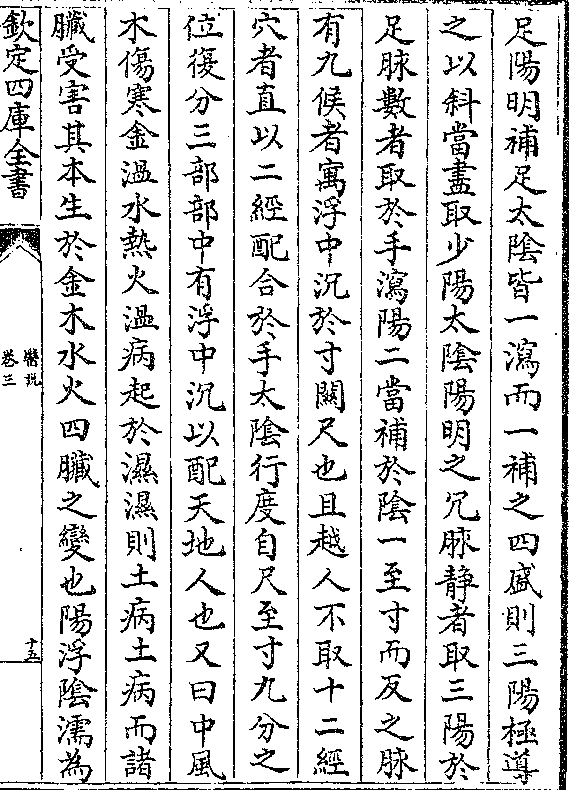 足陽明補足太陰皆一瀉而一補之四盛則三陽極導
之以針當盡取少陽太陰陽明之穴脉静者取三陽於
足脉數者取於手瀉陽二當補於陰一至寸而反之脉
有九候者寓浮中沉於寸關尺也且越人不取十二經
穴者直以二經配合於手太陰行度自尺至寸九分之
位復分三部部中有浮中沉以配天地人也又曰中風
木傷寒金溫水熱火溫病起於濕濕則土病土病而諸
臟受害其本生於金木水火四臟之變也陽浮陰濡為
欽定四庫全書
醫說
卷三
十五